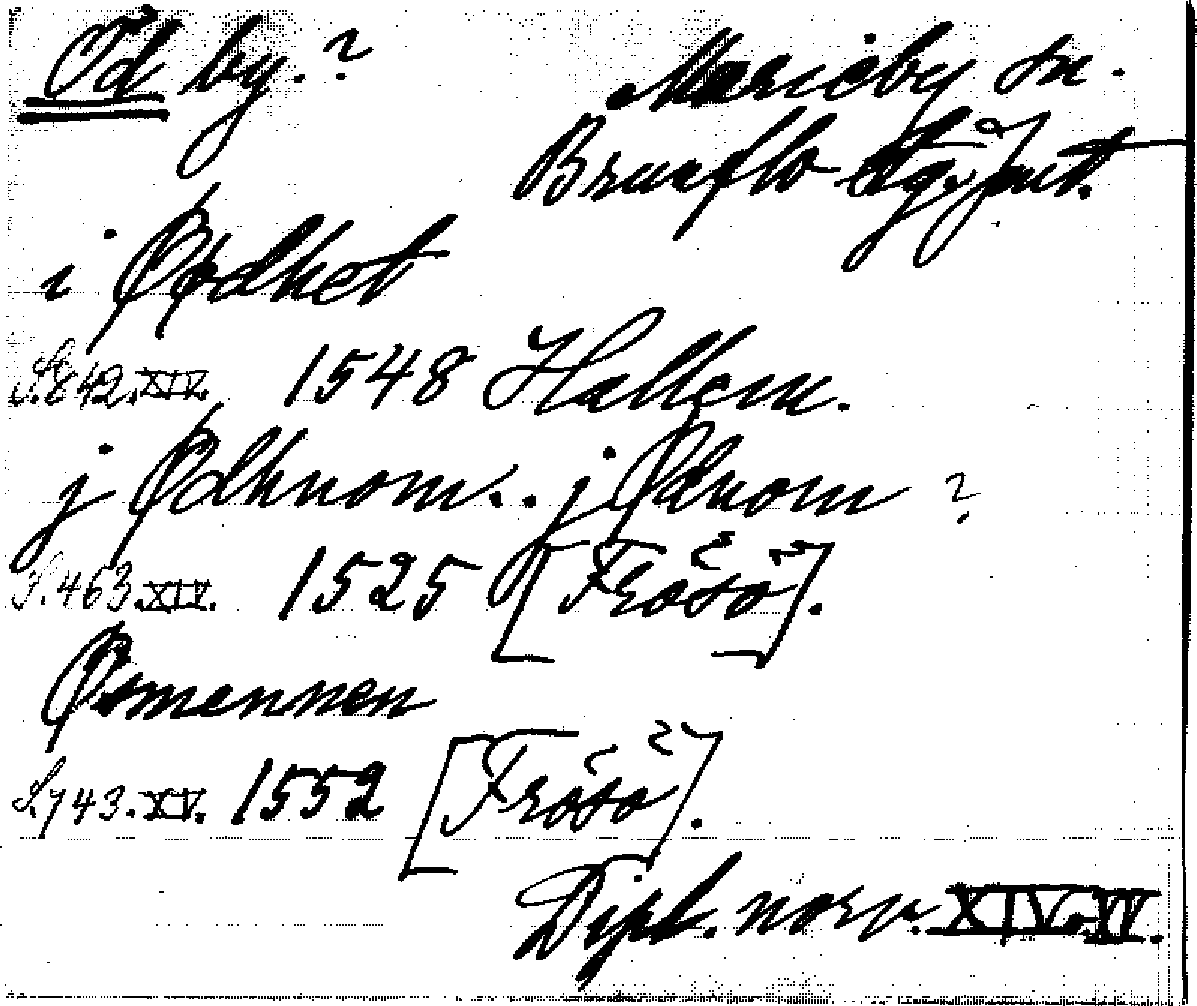 Öd by.? Marieby sn.
Brunflo tg. Jmt.
i Ødhet
S.842.XIV. 1548 Hallem.
j Ødhnom.. j Ødnom ?
S.463.XIV. 1525 [Frösö].
Ø mannen
S.743.XV. 1552 [Frösö].
Dipl. norv. XIV.XV.